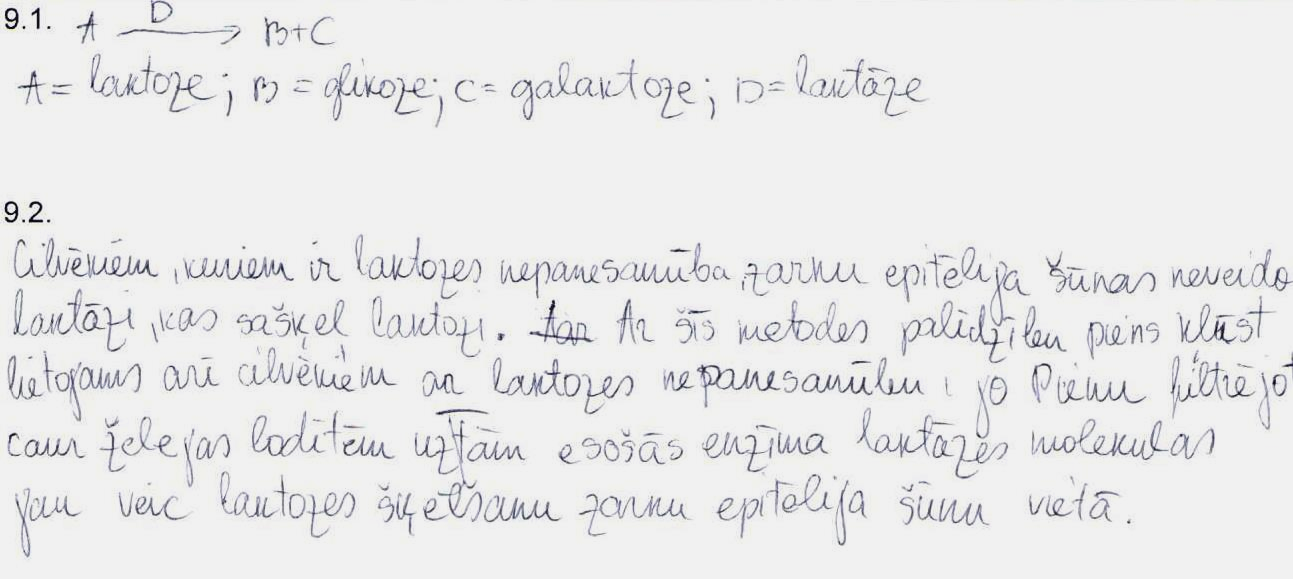 9.1. A D→ B+C
A = laktoze; B = glikoze; C = galaktoze; D = laktāze
9.2.
Cilvēkiem, kuriem ir laktozes nepanesamība, zarnu epitēlija šūnas neveido
laktāzi, kas sašķeļ laktozi. Ar šīs metodes palīdzību piens kļūst
lietojams arī cilvēkiem ar laktozes nepanesamību, jo Pienu filtrējot
caur želejas lodītēm uz tām esošās enzīma laktāzes molekulas
jau veic laktozes šķelšanu zarnu epitēlija šūnu vietā.